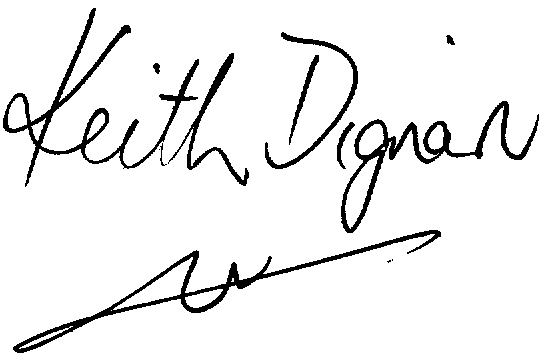 Keith Dignan